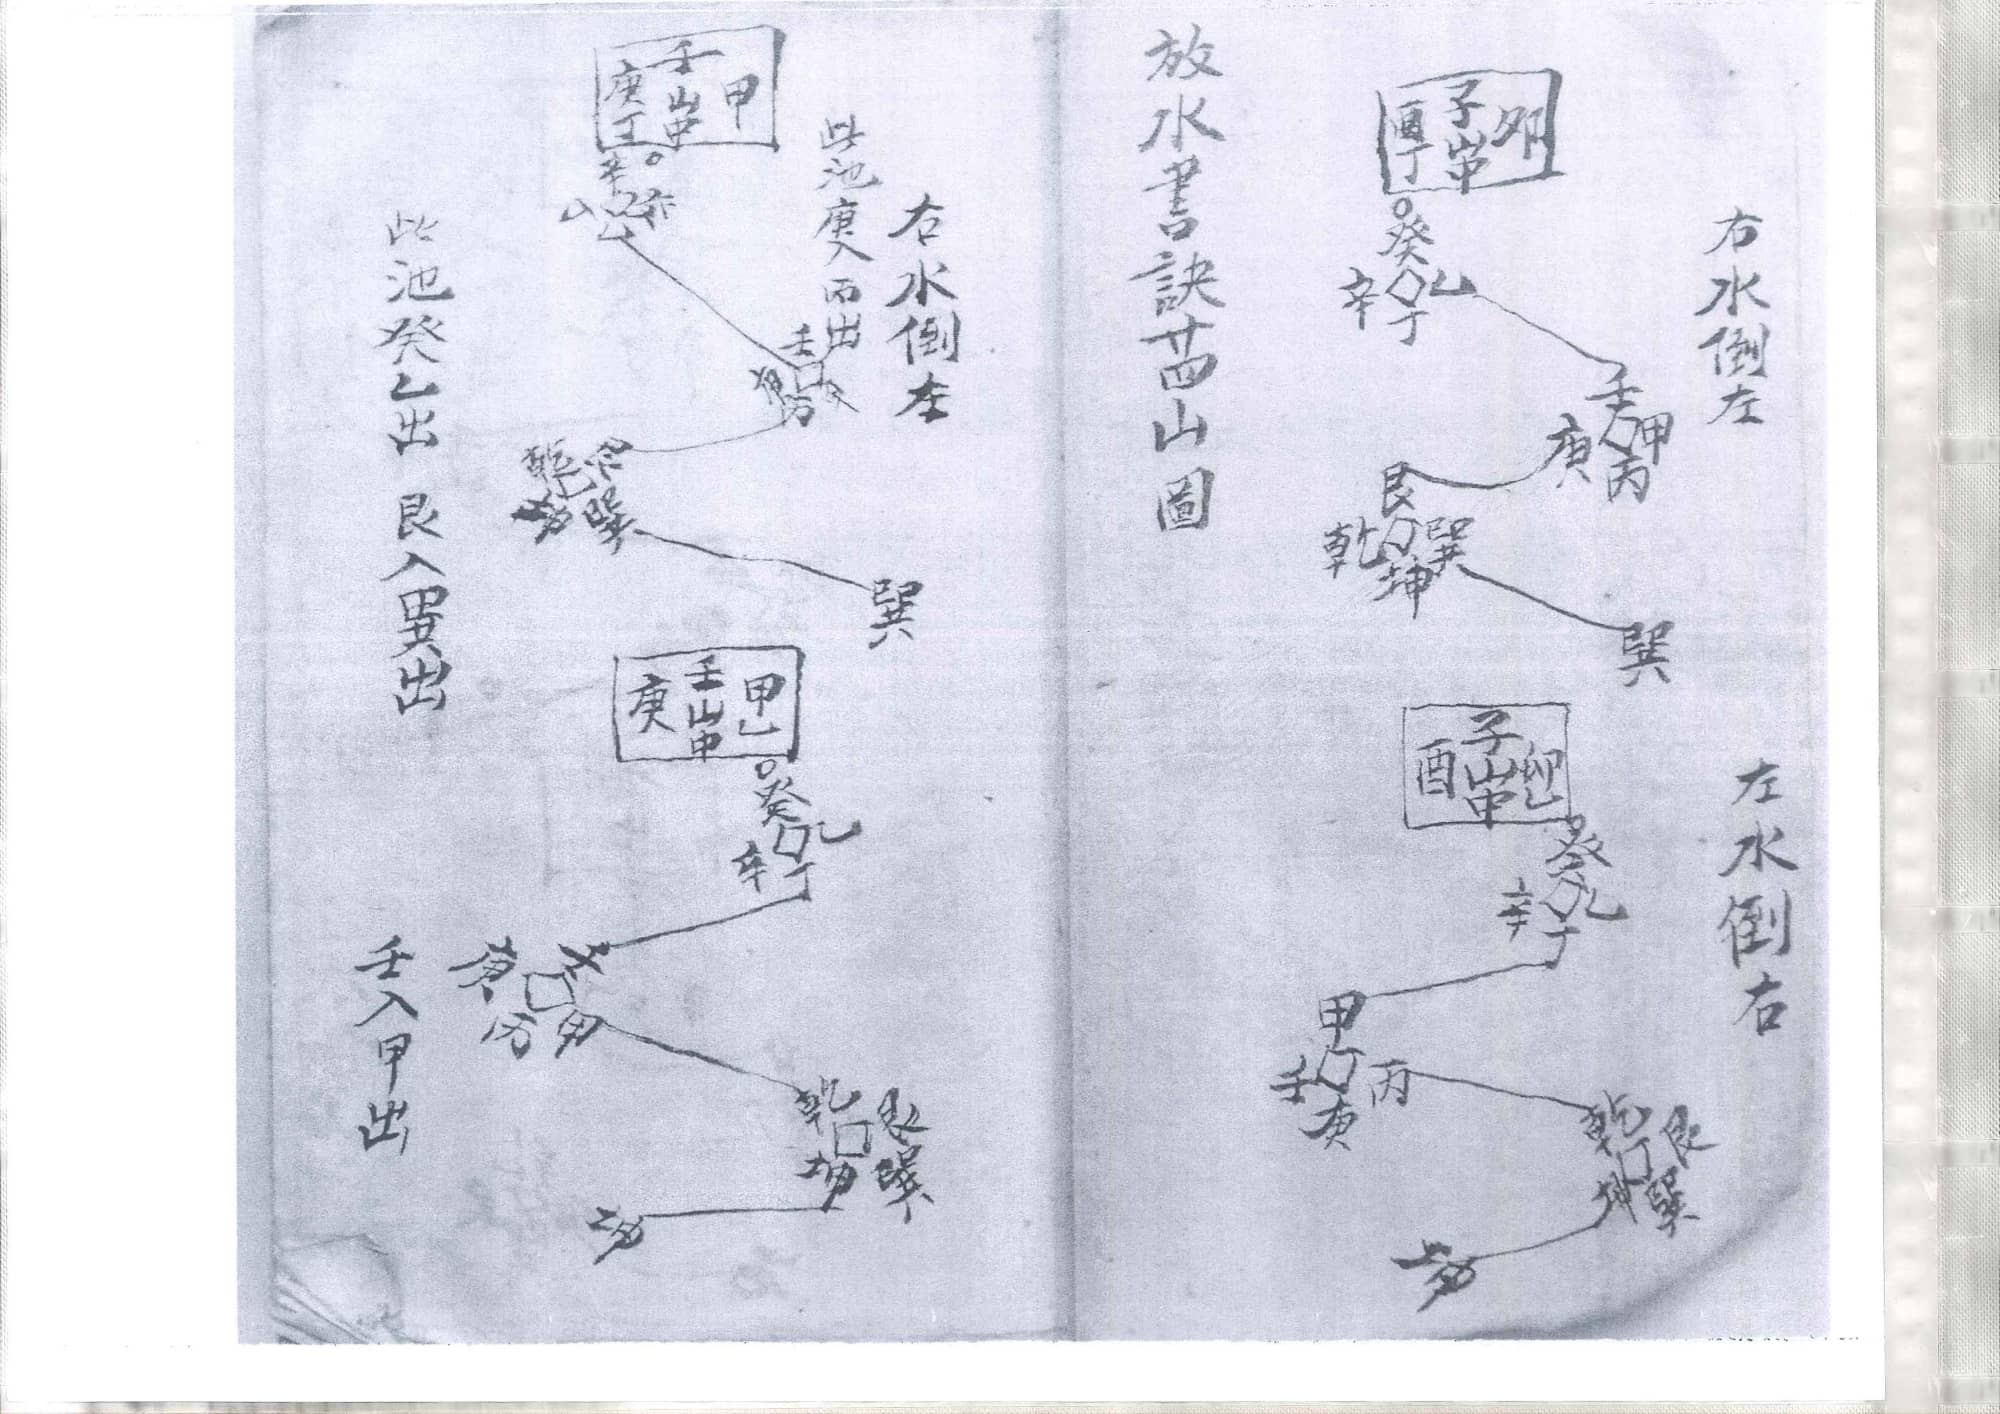 放水書訣廿四山圖
右水倒左
卯
子山中
酉丁
癸
乙
辛
丁
壬
甲
庚
丙
艮
乾
巽
坤
巽
左水倒右
卯乙
子山中
酉
癸
乙
辛
丁
甲
壬
丙
庚
乾
艮
坤
巽
坤
右水倒左
此池庚入丙出
甲
壬山中
庚丁
辛
壬
艮
乾
巽
坤
巽
此池癸乙出 艮入巽出
甲乙
壬山中
庚
癸
乙
辛
丁
壬
庚
丙
甲
乾
艮
坤
巽
坤
壬入甲出